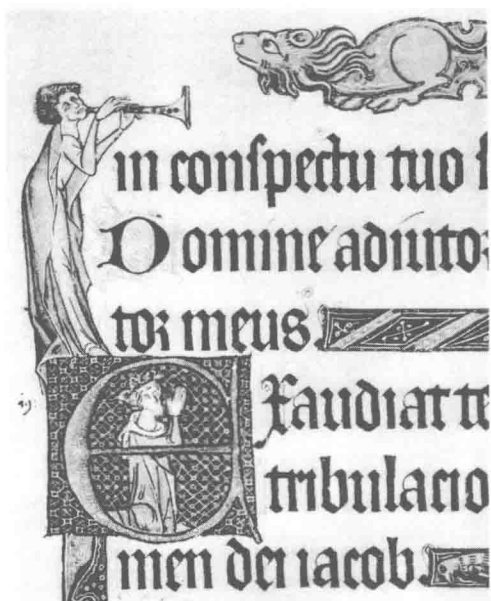 in conſpectu tuo ſ
Domine adiuto
tor meus.
Exaudiat te
tribulacio
men dei iacob.